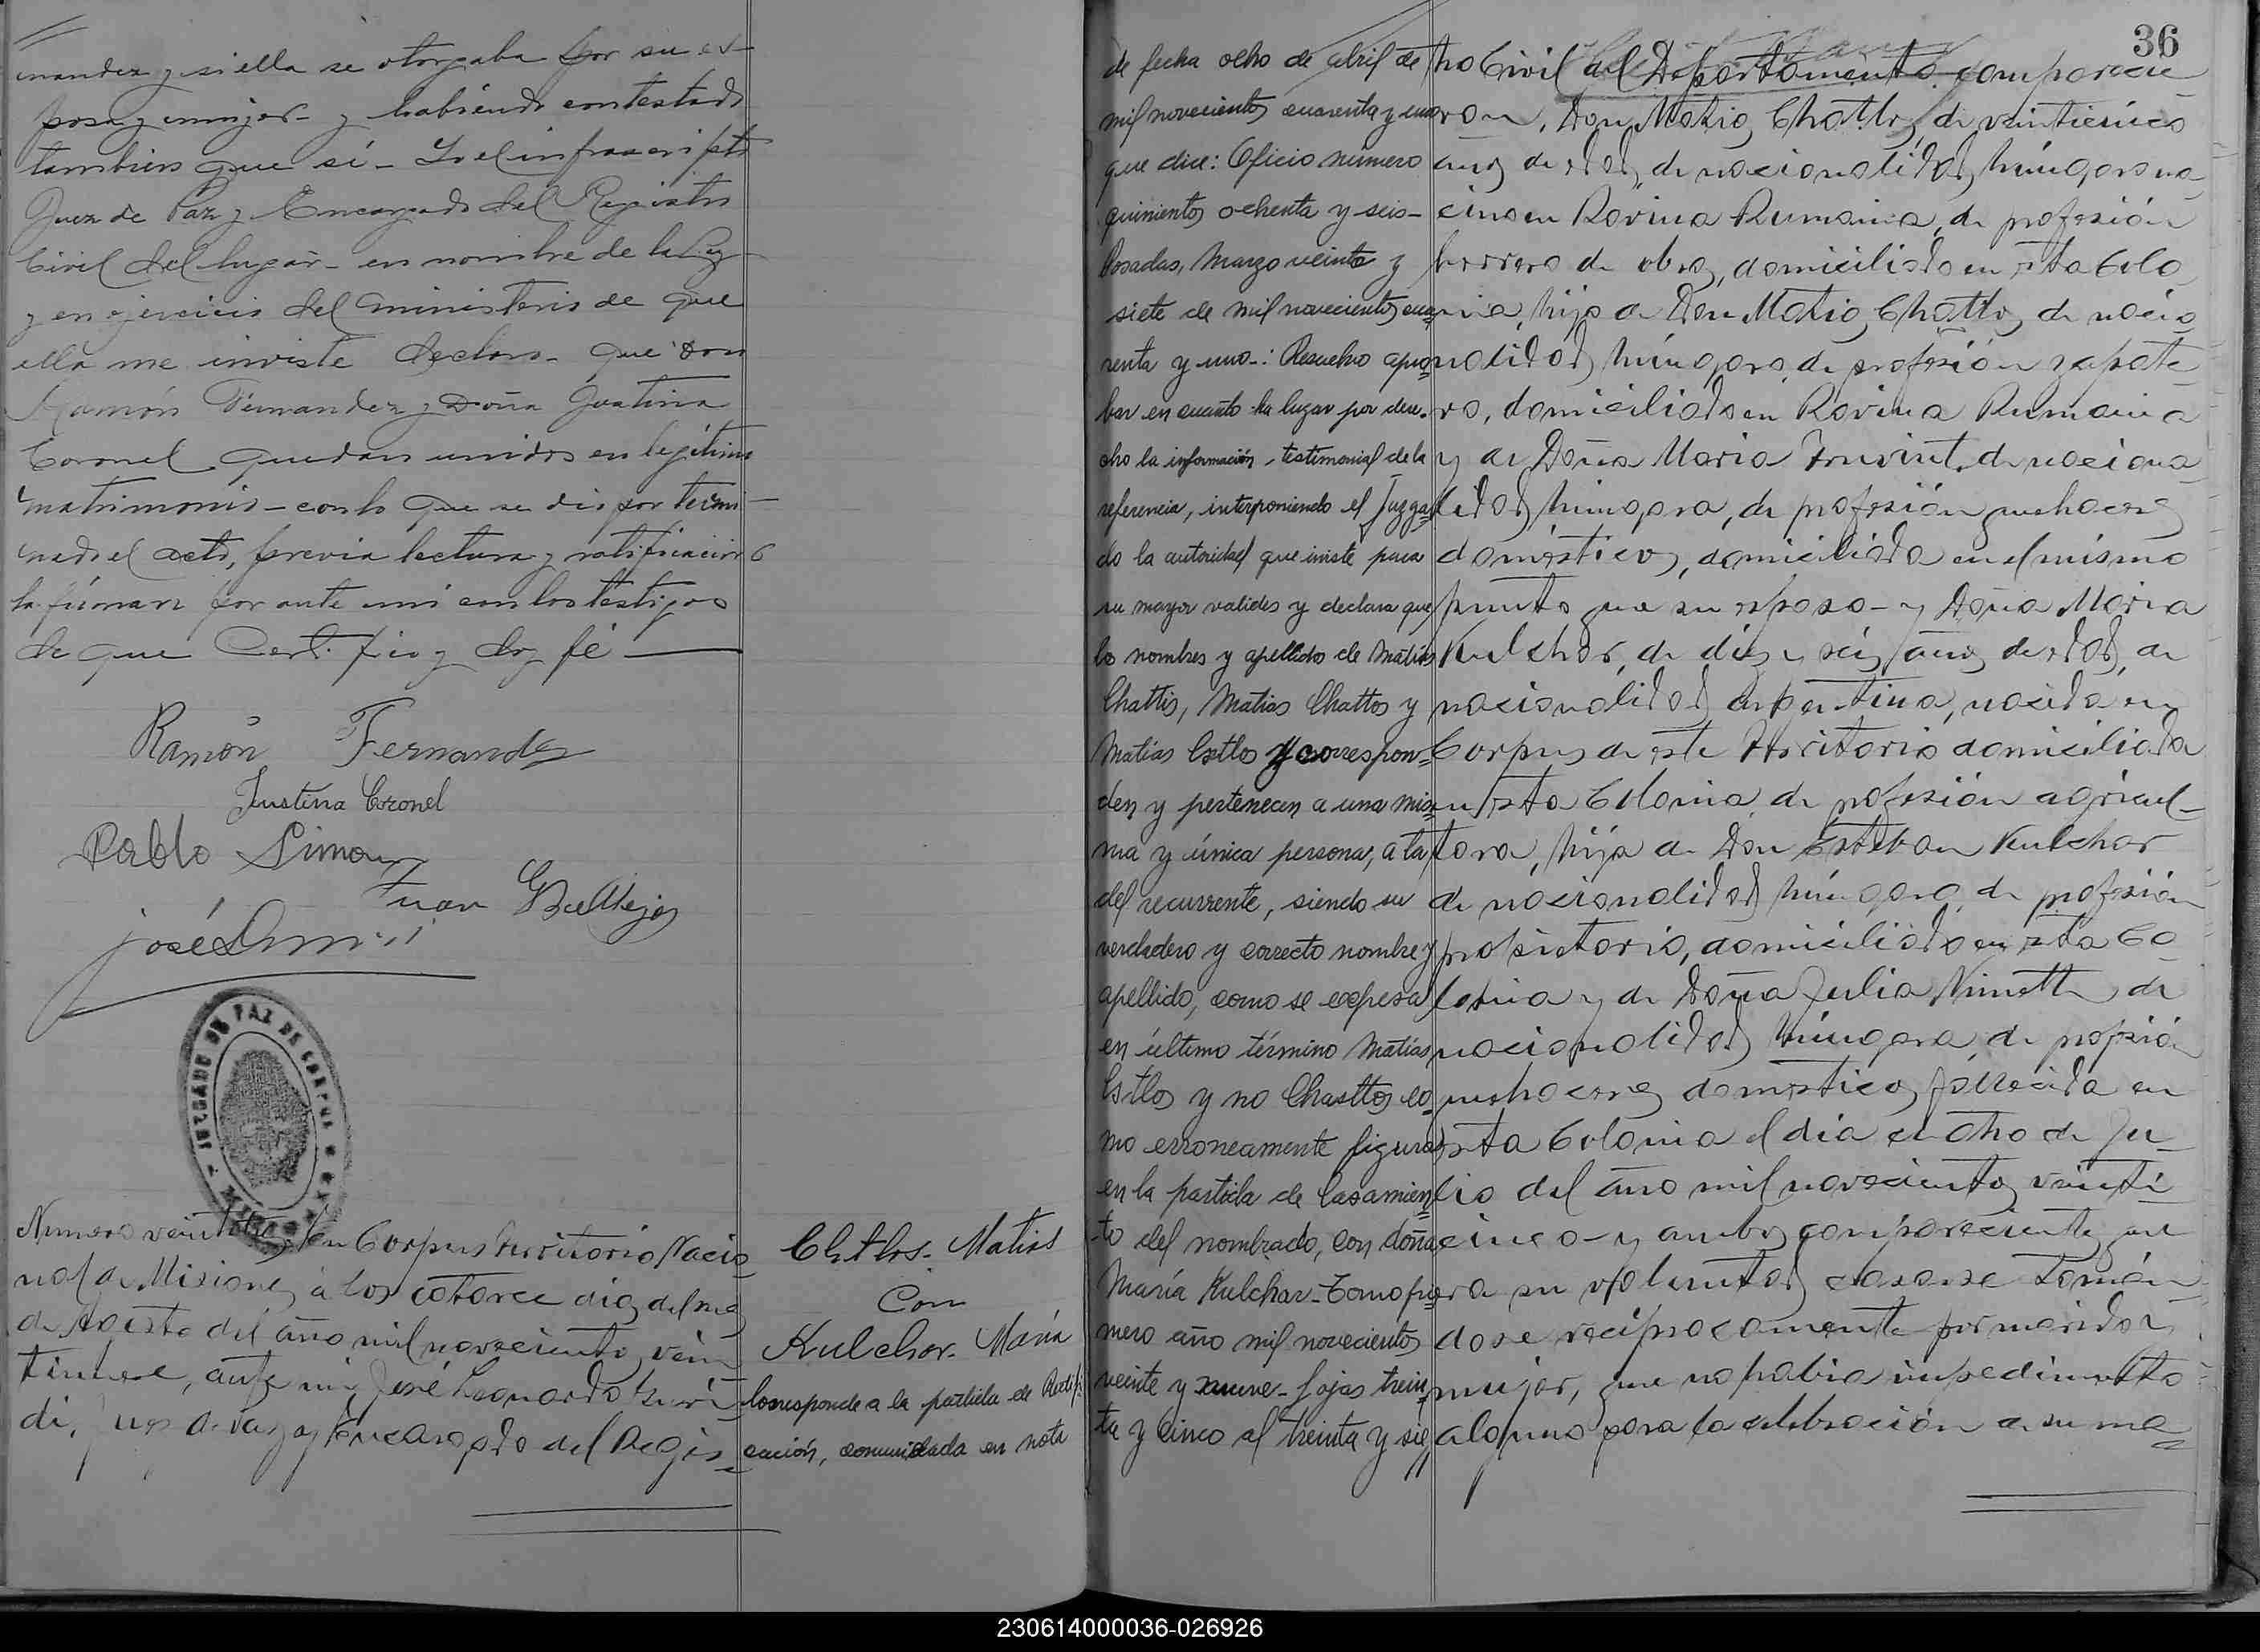 nandez y si ella se otorgaba por su es-
posa y mujer - y habiendo contestado
tambien que sí - Yo el infrascripto
Juez de Paz y Encargado del Registro
Civil del lugar - en nombre de la Ley
y en ejercicio del ministerio de que
ella me inviste declaro - que Don
Ramón Fernandez y Doña Justina
Coronel quedan unidos en legítimo
matrimonio - con lo que se dio por termi-
nado el acto, previa lectura y ratificación
la firman por ante mi con los testigos
de que Certifico y doy fé
Ramón Fernandez
Justina Coronel
Pablo Simon
Juan Vallejos
José
JUZGADO DE PAZ DE CORPUS
Numero en Corpus Territorio Nacio
nal de Misiones, a los catorce dias del mes
de Agosto del año mil novecientos vein
tinueve, ante mi, José Leonardo
di, Juez de Paz y Encargado del Regis-
Chtlos. Matias
Con
Kulchar. María
Corresponde a la partida de Rectifi-
cación, comunicada en nota
36
de fecha ocho de abril de
mil novecientos cuarenta y uno
que dice: Oficio número
quinientos ochenta y seis -
Posadas, Marzo veinte y
siete de mil novecientos cua-
renta y uno -: Resuelvo apro-
bar en cuanto ha lugar por dere-
cho la información, testimonial de la
referencia, interponiendo el Juzga-
do la autoridad que inviste para
su mayor valides y declara que
los nombres y apellidos de Matias
Chattis, Matias Chattos y
Matias Cstlos y correspon-
den y pertenecen a una mis-
ma y única persona, a la
del recurrente, siendo su
verdadero y correcto nombre y
apellido, como se expresa
en último término Matias
Cstlos y no Chasttos co-
mo erroneamente figura
en la partida de Casamien-
to del nombrado, con doña
María Kulchar - Tomo pri-
mero año mil novecientos
veinte y nueve - fojas trein-
ta y cinco al treinta y sie
tro Civil del Departamento comparecie-
ron, Don Matias Chattos, de veinticinco
años de edad, de nacionalidad húngaro na-
cido en Ravina Rumania, de profesión
herrero de obra, domiciliado en esta Colo
nia, hijo de Don Matias Chattos, de nacio
nalidad húngaro, de profesión zapate-
ro, domiciliado en Ravina Rumania
y de Doña Maria de naciona-
lidad húngara, de profesión quehaceres
domésticos, domiciliada en el mismo
punto que su esposo - y Doña Maria
Kulchar, de diez y seis años de edad, de
nacionalidad argentina, nacida en
Corpus de este Territorio domiciliada
en esta Colonia, de profesión agricul-
tora, hija de Don Esteban Kulchar
de nacionalidad húngaro, de profesión
propietario, domiciliado en esta Co-
lonia y de Doña Julia de
nacionalidad húngara, de profesión
quehaceres domesticos, fallecida en
esta Colonia el día de Ju-
lio del año mil novecientos veinti-
cinco - y ambos comparecientes que
era su voluntad casarse tomán-
dose recíprocamente por marido y
mujer, que no habia impedimento
alguno para la celebración de su ma-
230614000036-026926